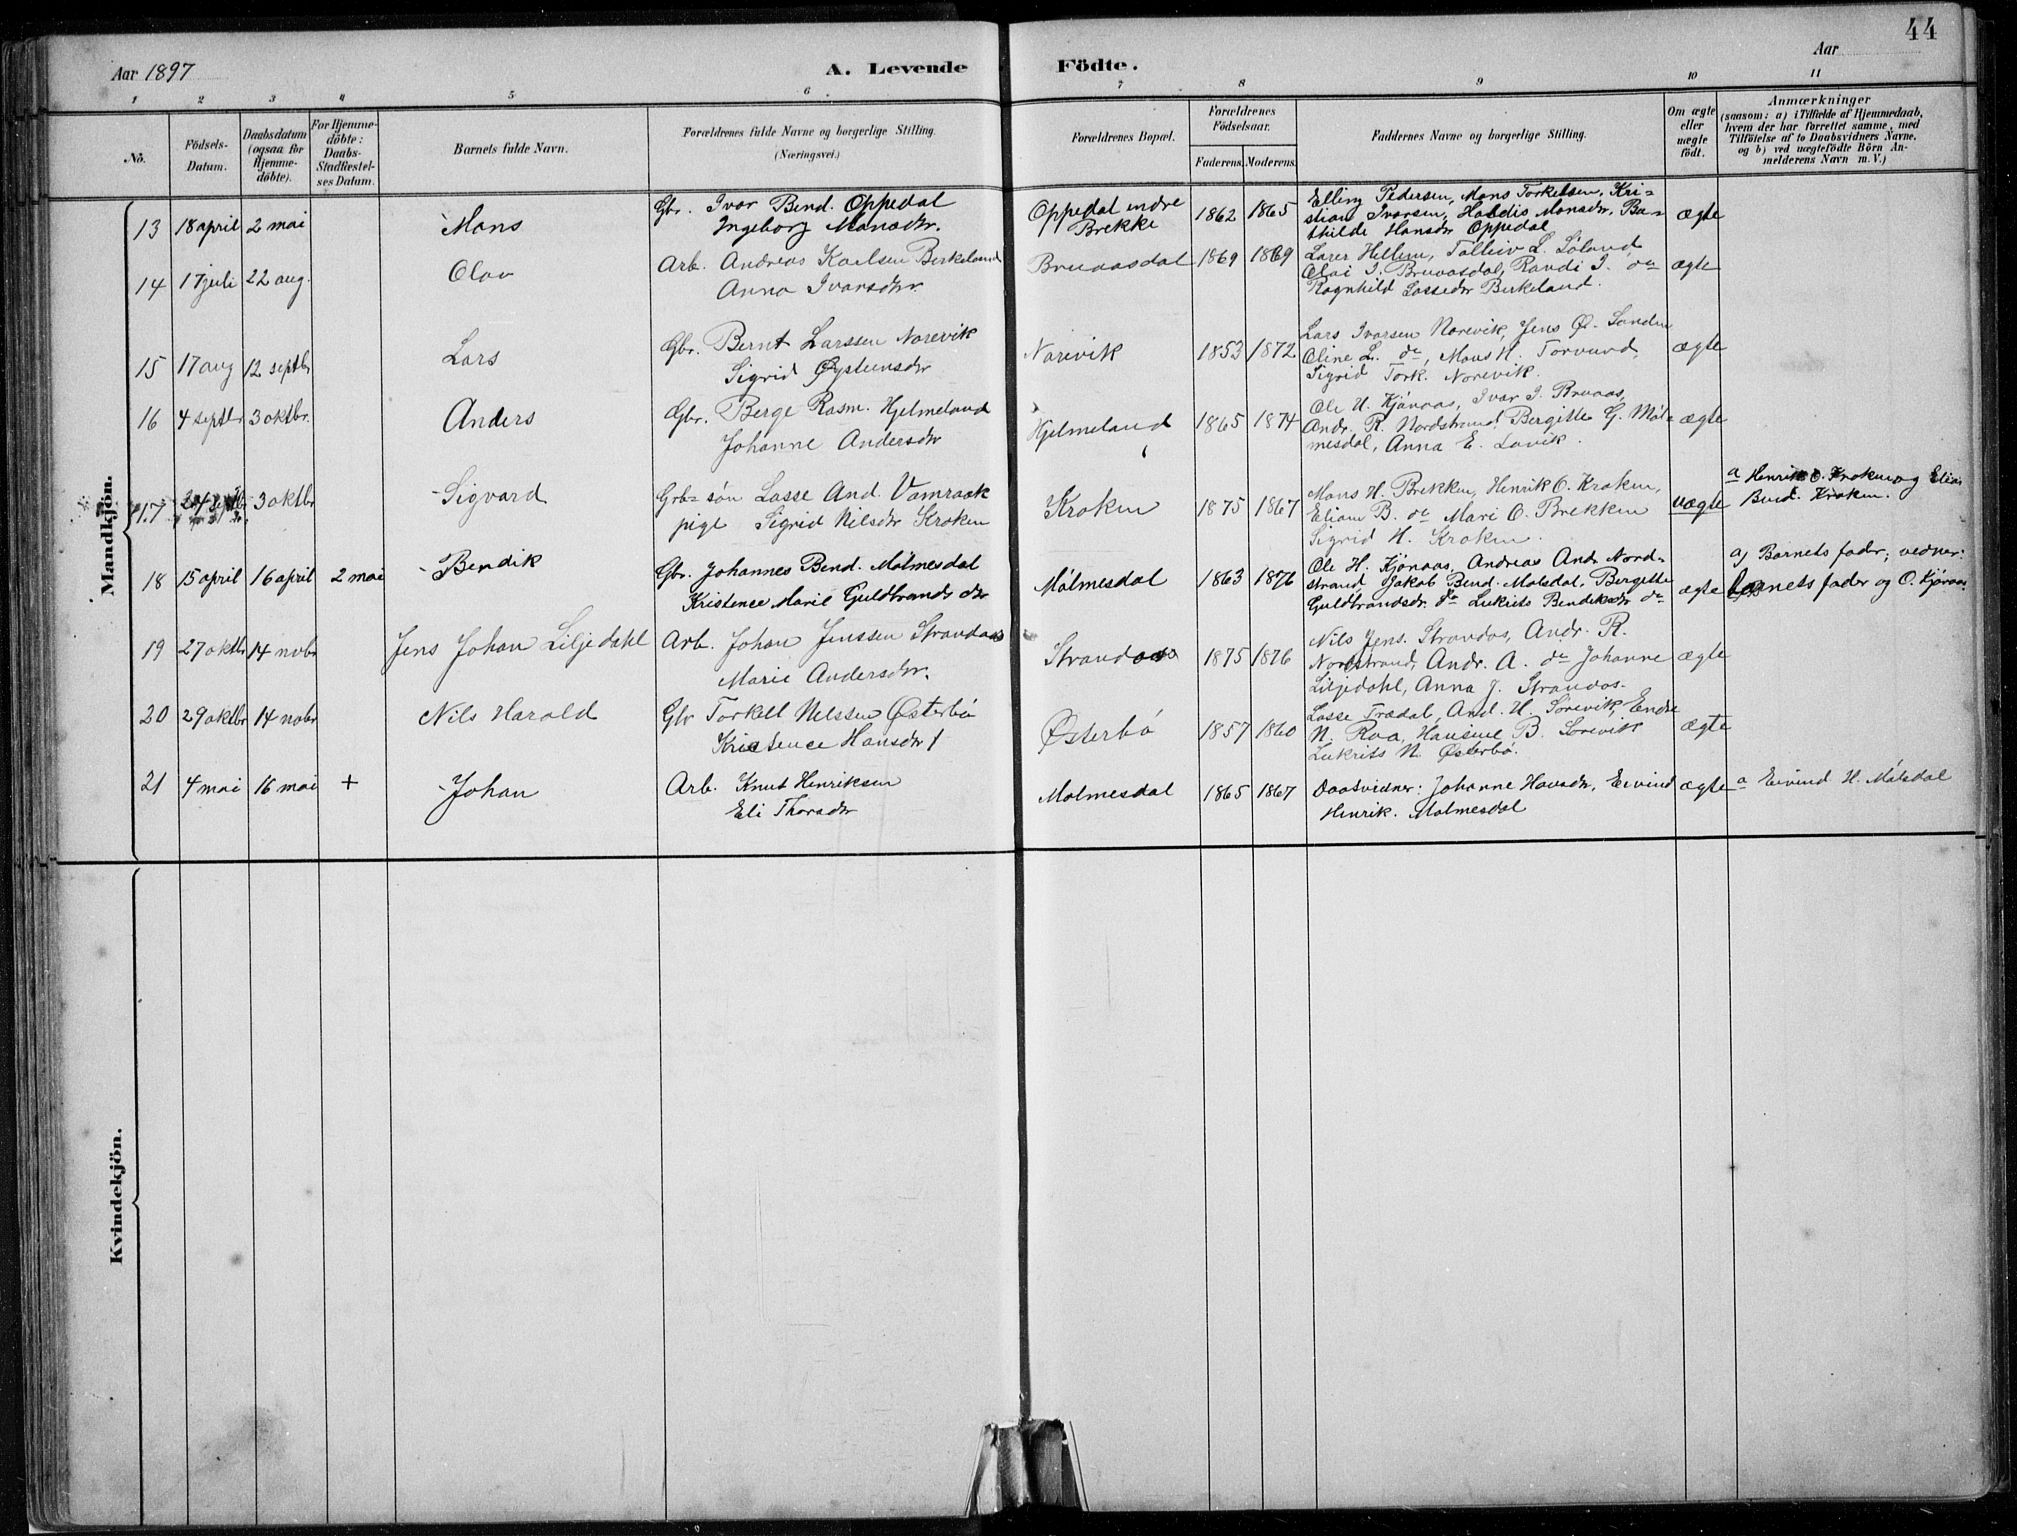 44
Aar 1897
A. Levende Födte.
Aar
1 2 3 4 5 6 7 8 9 10 11
No.
Födsels-Datum.
Daabsdatum (ogsaa for Hjemme-döbte).
For Hjemme-döbte: Daabs-Stadfæstel-ses Datum.
Barnets fulde Navn.
Forældrenes fulde Navne og borgerlige Stilling. (Næringsvei.)
Forældrenes Bopæl.
Forældrenes Födselsaar.
Faderens. Moderens.
Faddernes Navne og borgerlige Stilling.
Om ægte eller uægte födt.
Anmærkninger
(saasom: a) i Tilfælde af Hjemmedaab, hvem der har forrettet samme, med Tilföielse af to Daabsvidners Navne. og b) ved uægtefödte Börn An-melderens Navn m. V.)
Mandkjön.
13 18 april 2 mai Mons Gbr. Ivar Bend. Oppedal Oppedal indre 1862 1865 Elling Pedersen, Mons Torkelsen, Kri- ægte
Ingeborg Monsdtr. Brekke stian Ivarsen, Haldis Monsdtr, Ba-
thilde Hansdtr Oppedal
14 17 juli 22 aug. Olav Arb. Andreas Karlsen Birkeland Bruaasdal 1869 1869 Lærer Hellem, Tolleiv L. Söland, ægte
Anna Ivarsdtr Olai I. Bruaasdal, Randi I. do
Ragnhild Lassedtr Birkeland.
15 17 aug 12 septbr Lars Gbr. Bernt Larssen Norevik Norevik 1853 1872 Lars Ivarsen Norevik, Jens Ø. Sanden ægte
Sigrid Øysteinsdtr Oline L. do, Mons N. Torvund,
Sigrid Tork. Norevik.
16 4 septbr 3 oktbr. Anders Gbr. Berge Rasm. Hjelmeland Hjelmeland 1865 1874 Ole H. Kjönaas, Ivar I. Bruaas, ægte
Johanne Andersdtr Andr. R. Nordstrand, Bergitte G. Möl-
mesdal, Anna E. Lavik.
17 3 oktbr Sigvard Gbr søn Lasse And. Vamraak Kroken 1875 1867 Mons H. Brekken, Henrik O. Kroken, uægte a Henrik O. Kroken og Elias
pige Sigrid Nilsdtr Kroken Eliam B. do Mari O. Brekken Bend. Kroken.
Sigrid H. Kroken.
18 15 april 16 april 2 mai Bendik Gbr. Johannes Bend. Mölmesdal Mölmesdal 1863 1876 Ole H. Kjönaas, Andreas And. Nord- ægte a) Barnets fader; vidner:
Kristence Marie Guldbrandsdtr strand Jakob Bend. Molsdal, Bergitte barnets fader og O. Kjönaas.
Guldbrandsdr. do Lukrits Bendiksdtr do
19 27 oktbr 14 nvbr Jens Johan Liljedahl Arb. Johan Jenssen Strandaas Strandaas 1875 1876 Nils Jens. Strandas, Andr. R. ægte
Marie Andersdtr. Nordstrand, Andr. A. do Johanne
Liljedahl, Anna J. Strandas.
20 29 oktbr 14 nvbr Nils Harald Gbr Torkell Nelssen Østerbö Østerbö 1857 1860 Lasse Trædal, And. H. Sörevik, Endre ægte
Kristence Hansdtr N. Roa, Hansine B. Sörevik
Lukrits N. Østerbö.
21 4 mai 16 mai + Johan Arb. Knut Henriksen Molmesdal 1865 1867 Daabsvidner: Johanne Hansdtr, Eivind ægte a Eivind H. Mölsdal
Eli Thorsdtr Henrik. Molmesdal
Kvindekjön.